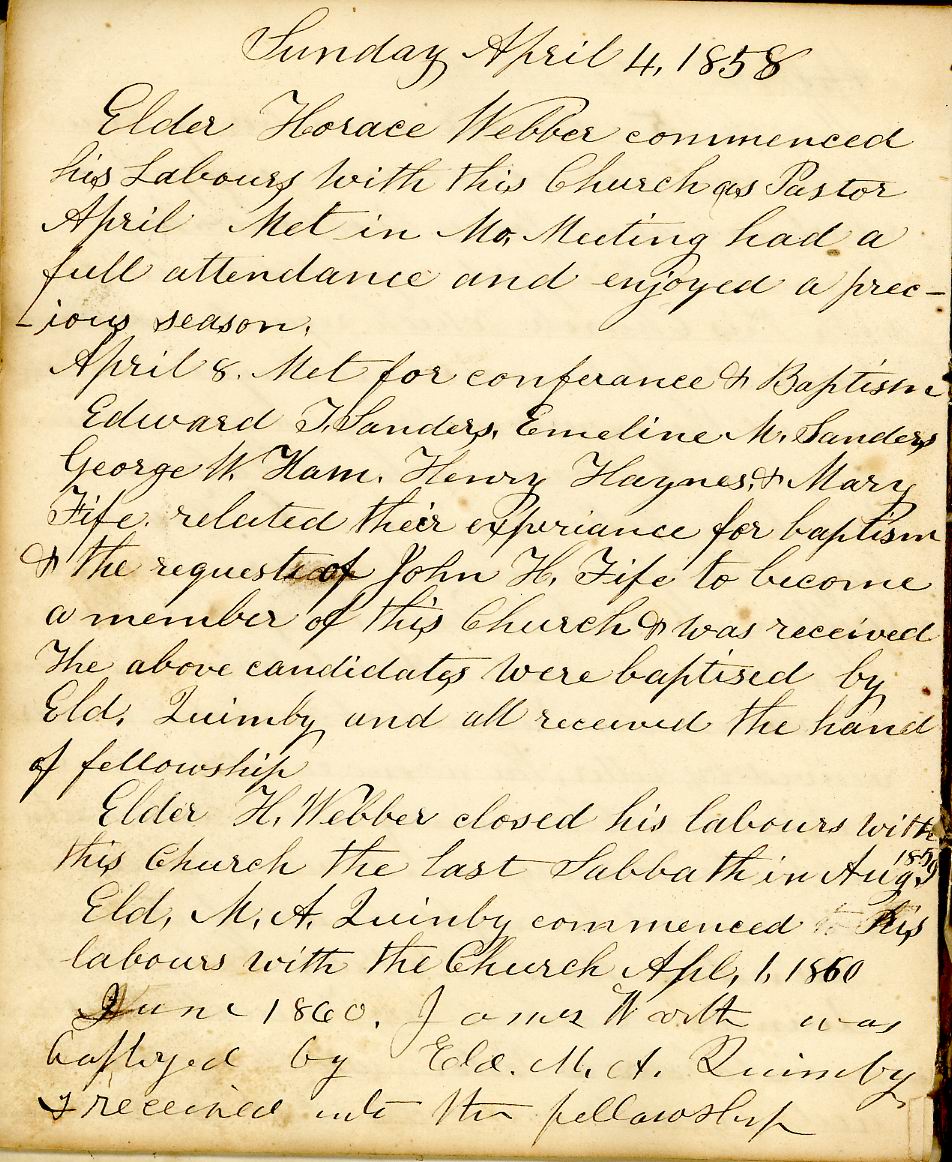 Sunday April 4, 1858
Elder Horace Webber commenced
his Labours with this Church as Pastor
April Met in Mo. Meeting had a
full attendance and enjoyed a prec-
-ious season.
April 8. Met for conferance & Baptism
Edward T. Sanders, Emeline M. Sanders
George W. Ham. Henry Haynes, & Mary
Fife. related their expriance for baptism
& the request of John H. Fife to become
a member of this Church & was received
The above candidates were baptised by
Eld. Quimby and all received the hand
of fellowship
Elder H. Webber closed his labours with
this Church the last Sabbath in Aug. 1859
Eld. M. A. Quinby commenced his
labours with the Church Apl, 1, 1860
June 1860. James Worth was
baptized by Eld. M. A. Quimby
& received into the fellowship